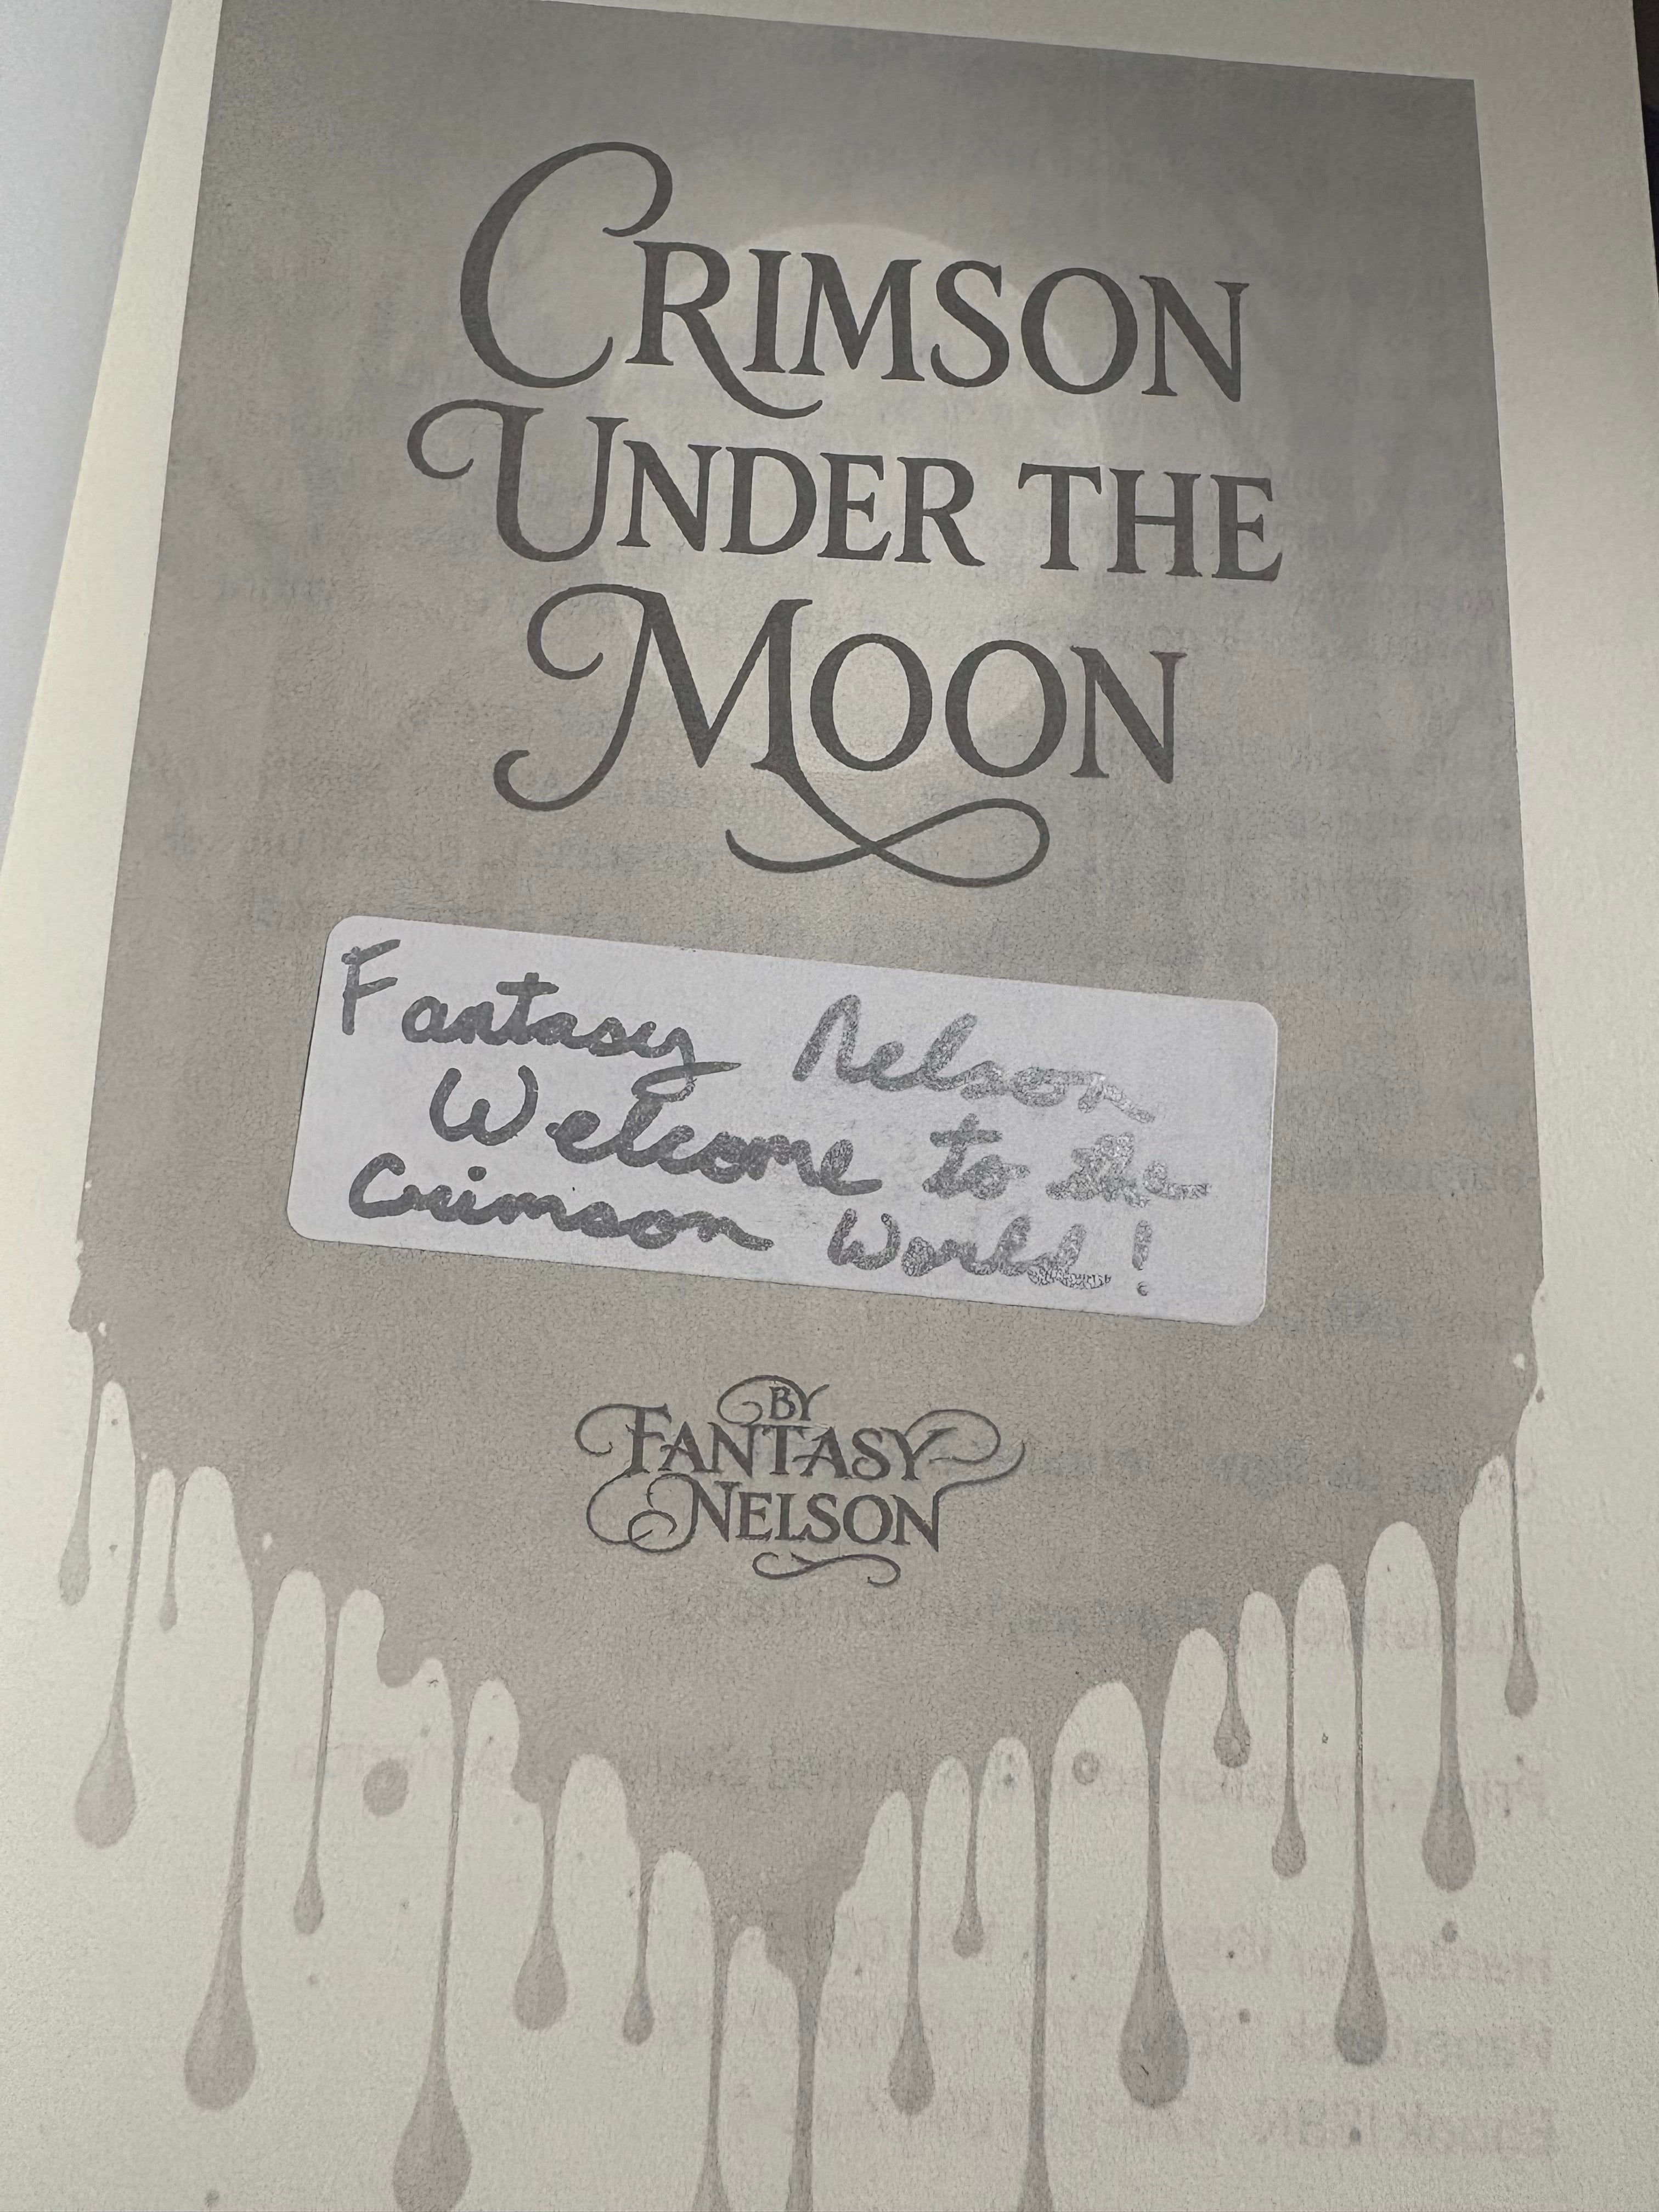 CRIMSON
UNDER THE
MOON
Fantasy Nelson
Welcome to the
Crimson World!
BY
FANTASY
NELSON